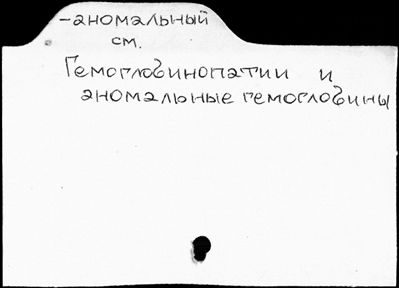 -аномальный
см.
Гемоглобинопатии и
аномальные гемоглобины